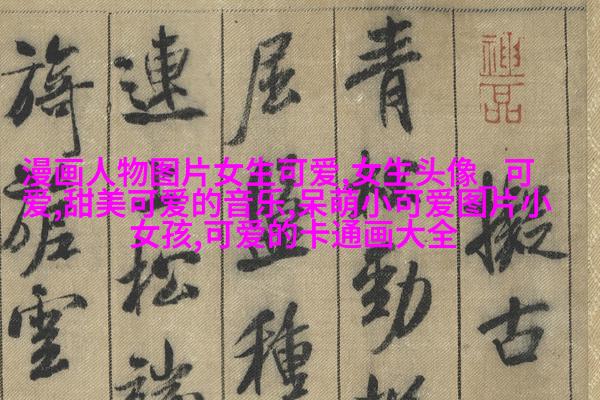 漫画人物图片女生可爱,女生头像 可
爱,甜美可爱的音乐,呆萌小可爱图片小
女孩,可爱的卡通画大全
神品
擬古
青松勁
屈盤種
連上松端
旖旎雲